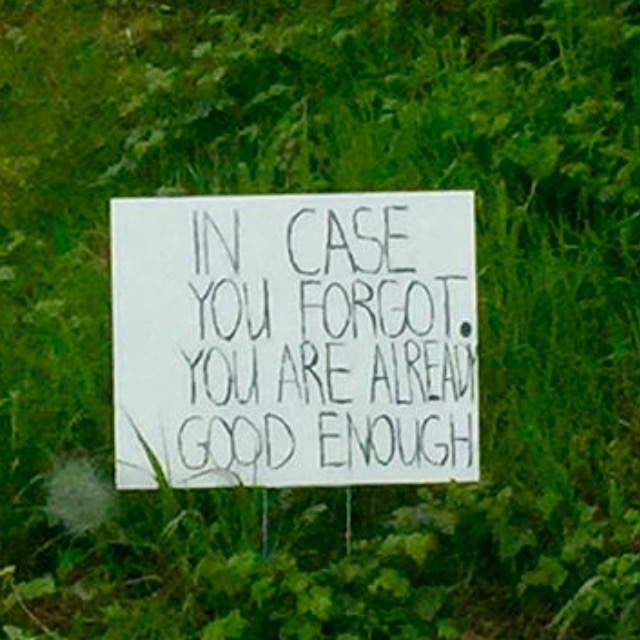 IN CASE
YOU FORGOT.
YOU ARE ALREADY
GOOD ENOUGH